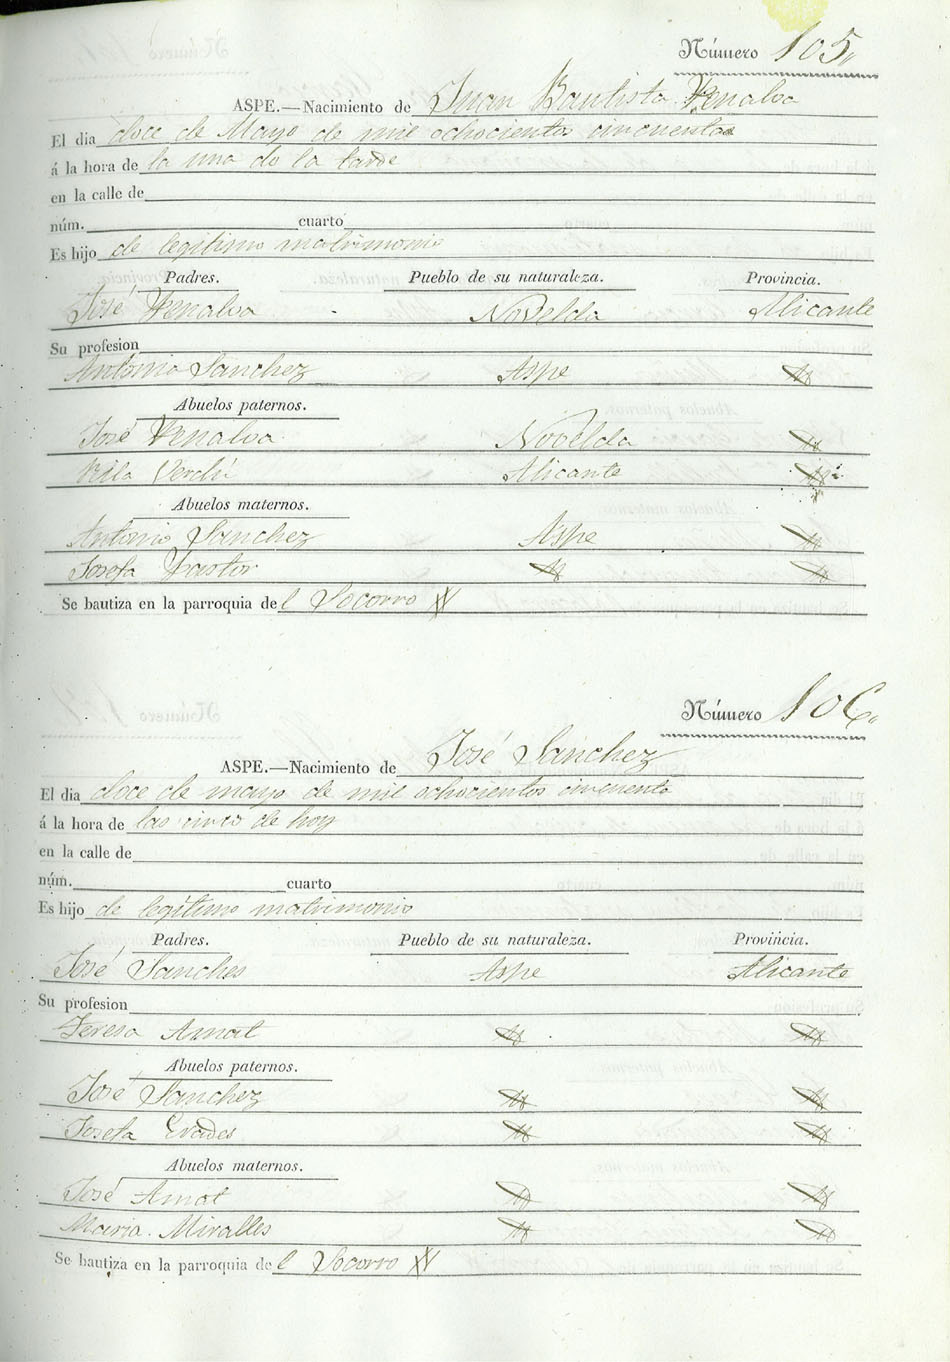 Número 105
ASPE.—Nacimiento de Juan Bautista Penalva
El dia doce de Mayo de mil ochocientos cincuenta
á la hora de la una de la tarde
en la calle de
núm. cuarto
Es hijo de legitimo matrimonio
Padres. Pueblo de su naturaleza. Provincia.
José Penalva Novelda Alicante
Su profesion
Antonia Sanchez Aspe
Abuelos paternos.
José Penalva Novelda
Rita Verdú Alicante
Abuelos maternos.
Antonio Sanchez Aspe
Josefa Pastor
Se bautiza en la parroquia del Socorro
Número 106
ASPE.—Nacimiento de José Sanchez
El dia doce de mayo de mil ochocientos cincuenta
á la hora de las cinco de hoy
en la calle de
núm. cuarto
Es hijo de legitimo matrimonio
Padres. Pueblo de su naturaleza. Provincia.
José Sanches Aspe Alicante
Su profesion
Teresa Amat
Abuelos paternos.
José Sanchez
Josefa Erades
Abuelos maternos.
José Amat
Maria Miralles
Se bautiza en la parroquia del Socorro